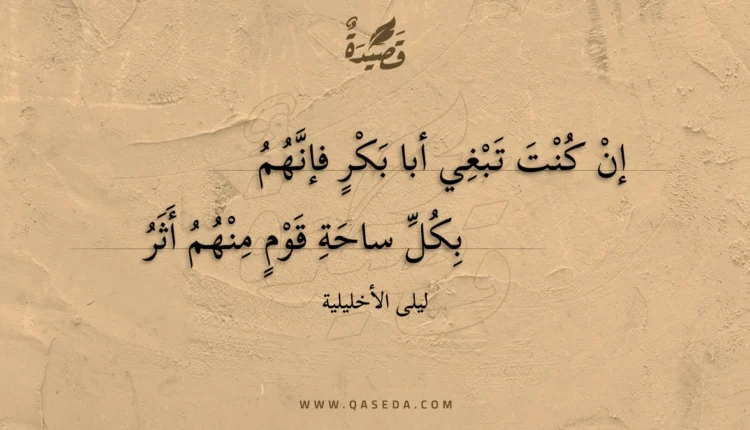 قَصِيْدَةٌ
إنْ كُنْتَ تَبْغِي أبا بَكْرٍ فإنَّهُمُ
بِكُلِّ ساحَةِ قَوْمٍ مِنْهُمُ أَثَرُ
ليلى الأخليلية
WWW.QASEDA.COM